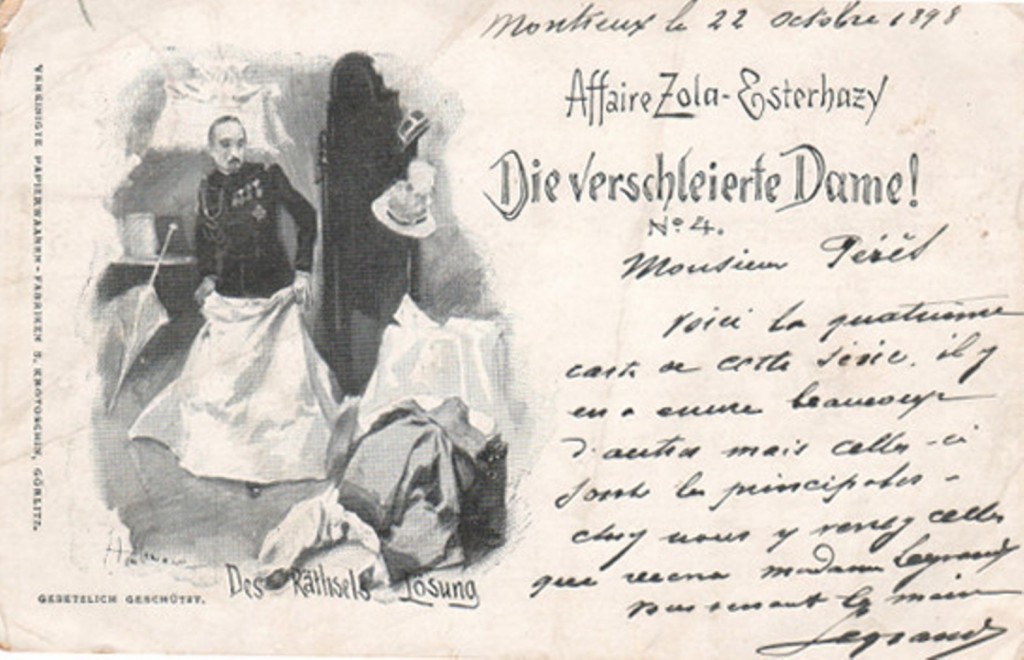 Montreux le 22 octobre 1898
Affaire Zola-Esterhazy
Die verschleierte Dame!
No. 4.
Monsieur
Voici la quatrième
carte de cette série. il y
en a encore beaucoup
d'autres mais celles-ci
sont les principales -
chez nous y celles
que Madame Legrand
la main
Legrand
Des Räthsels Lösung
GESETZLICH GESCHÜTZT.
VEREINIGTE PAPIERWAAREN-FABRIKEN S. KROTOSCHIN, GÖRLITZ.